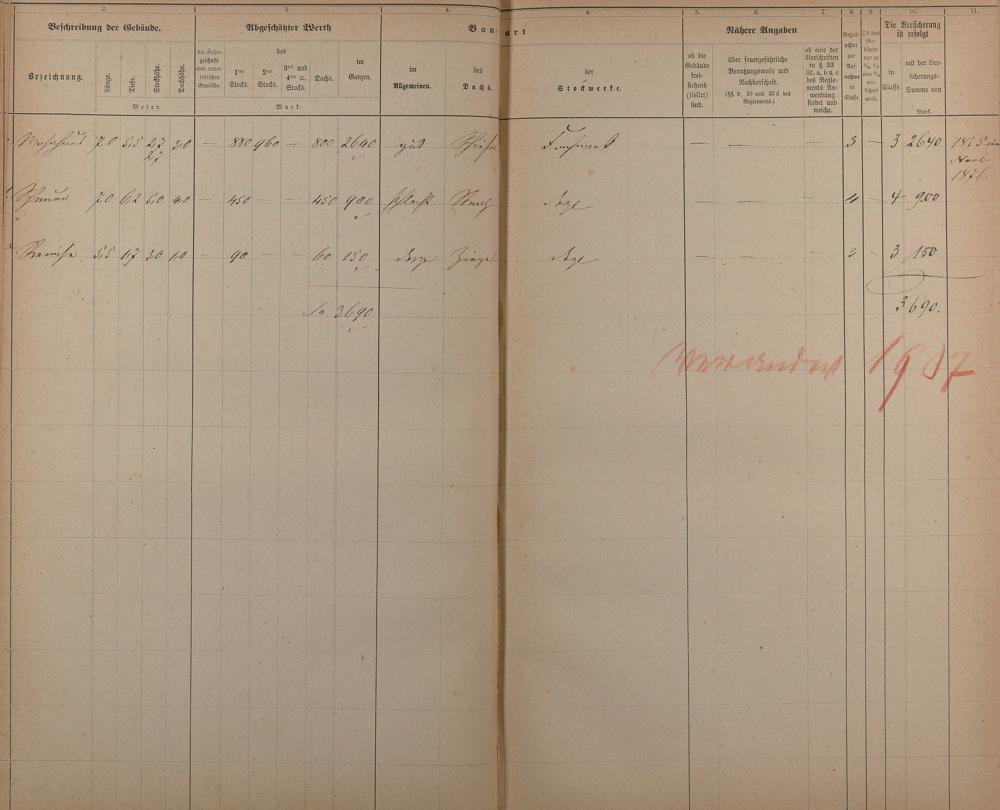 2. 3. 4. 4. 5. 6. 7. 8. 9. 10. 11.
Beschreibung der Gebäude. Abgeschätzter Werth Bau-art Nähere Angaben Die Versicherung ist erfolgt
Bezeichnung. Länge. Tiefe. Stockhöhe. Dachhöhe.
Meter.
der Kellergeschosse und unterirdischen Gewölbe.
des
1ten Stocks. 2ten Stocks. 3ten und 4ten ꝛc. Stocks. Dachs. im Ganzen.
Mark.
im Allgemeinen. des Dachs. der Stockwerke.
ob die Gebäude freistehend (isolirt) sind.
über feuergefährliche Benutzungsweise und Nachbarschaft.
(§§ 9, 19 und 33 d des Reglements.)
ob eine der Vorschriften in § 33 lit. a, b u. c des Reglements Anwendung findet und welche.
in Classe
mit der Versicherungs-Summe von
Mark.
Wohnhaus 7,0 5,5 2,7 3,0 — 880 960 — 800 2640 gut Fachwerk — — — 3 — 3 2640
2,7
Scheuer 7,0 6,2 5,0 4,0 — 450 — — 450 900 schlecht dsgl — — — 4 — 4 900
1876.
Remise 5,5 1,7 3,0 1,0 — 90 — — 60 150 dsgl Ziegel dsgl — — — 3 150
Sa. 3690 3690.
Verändert 1907